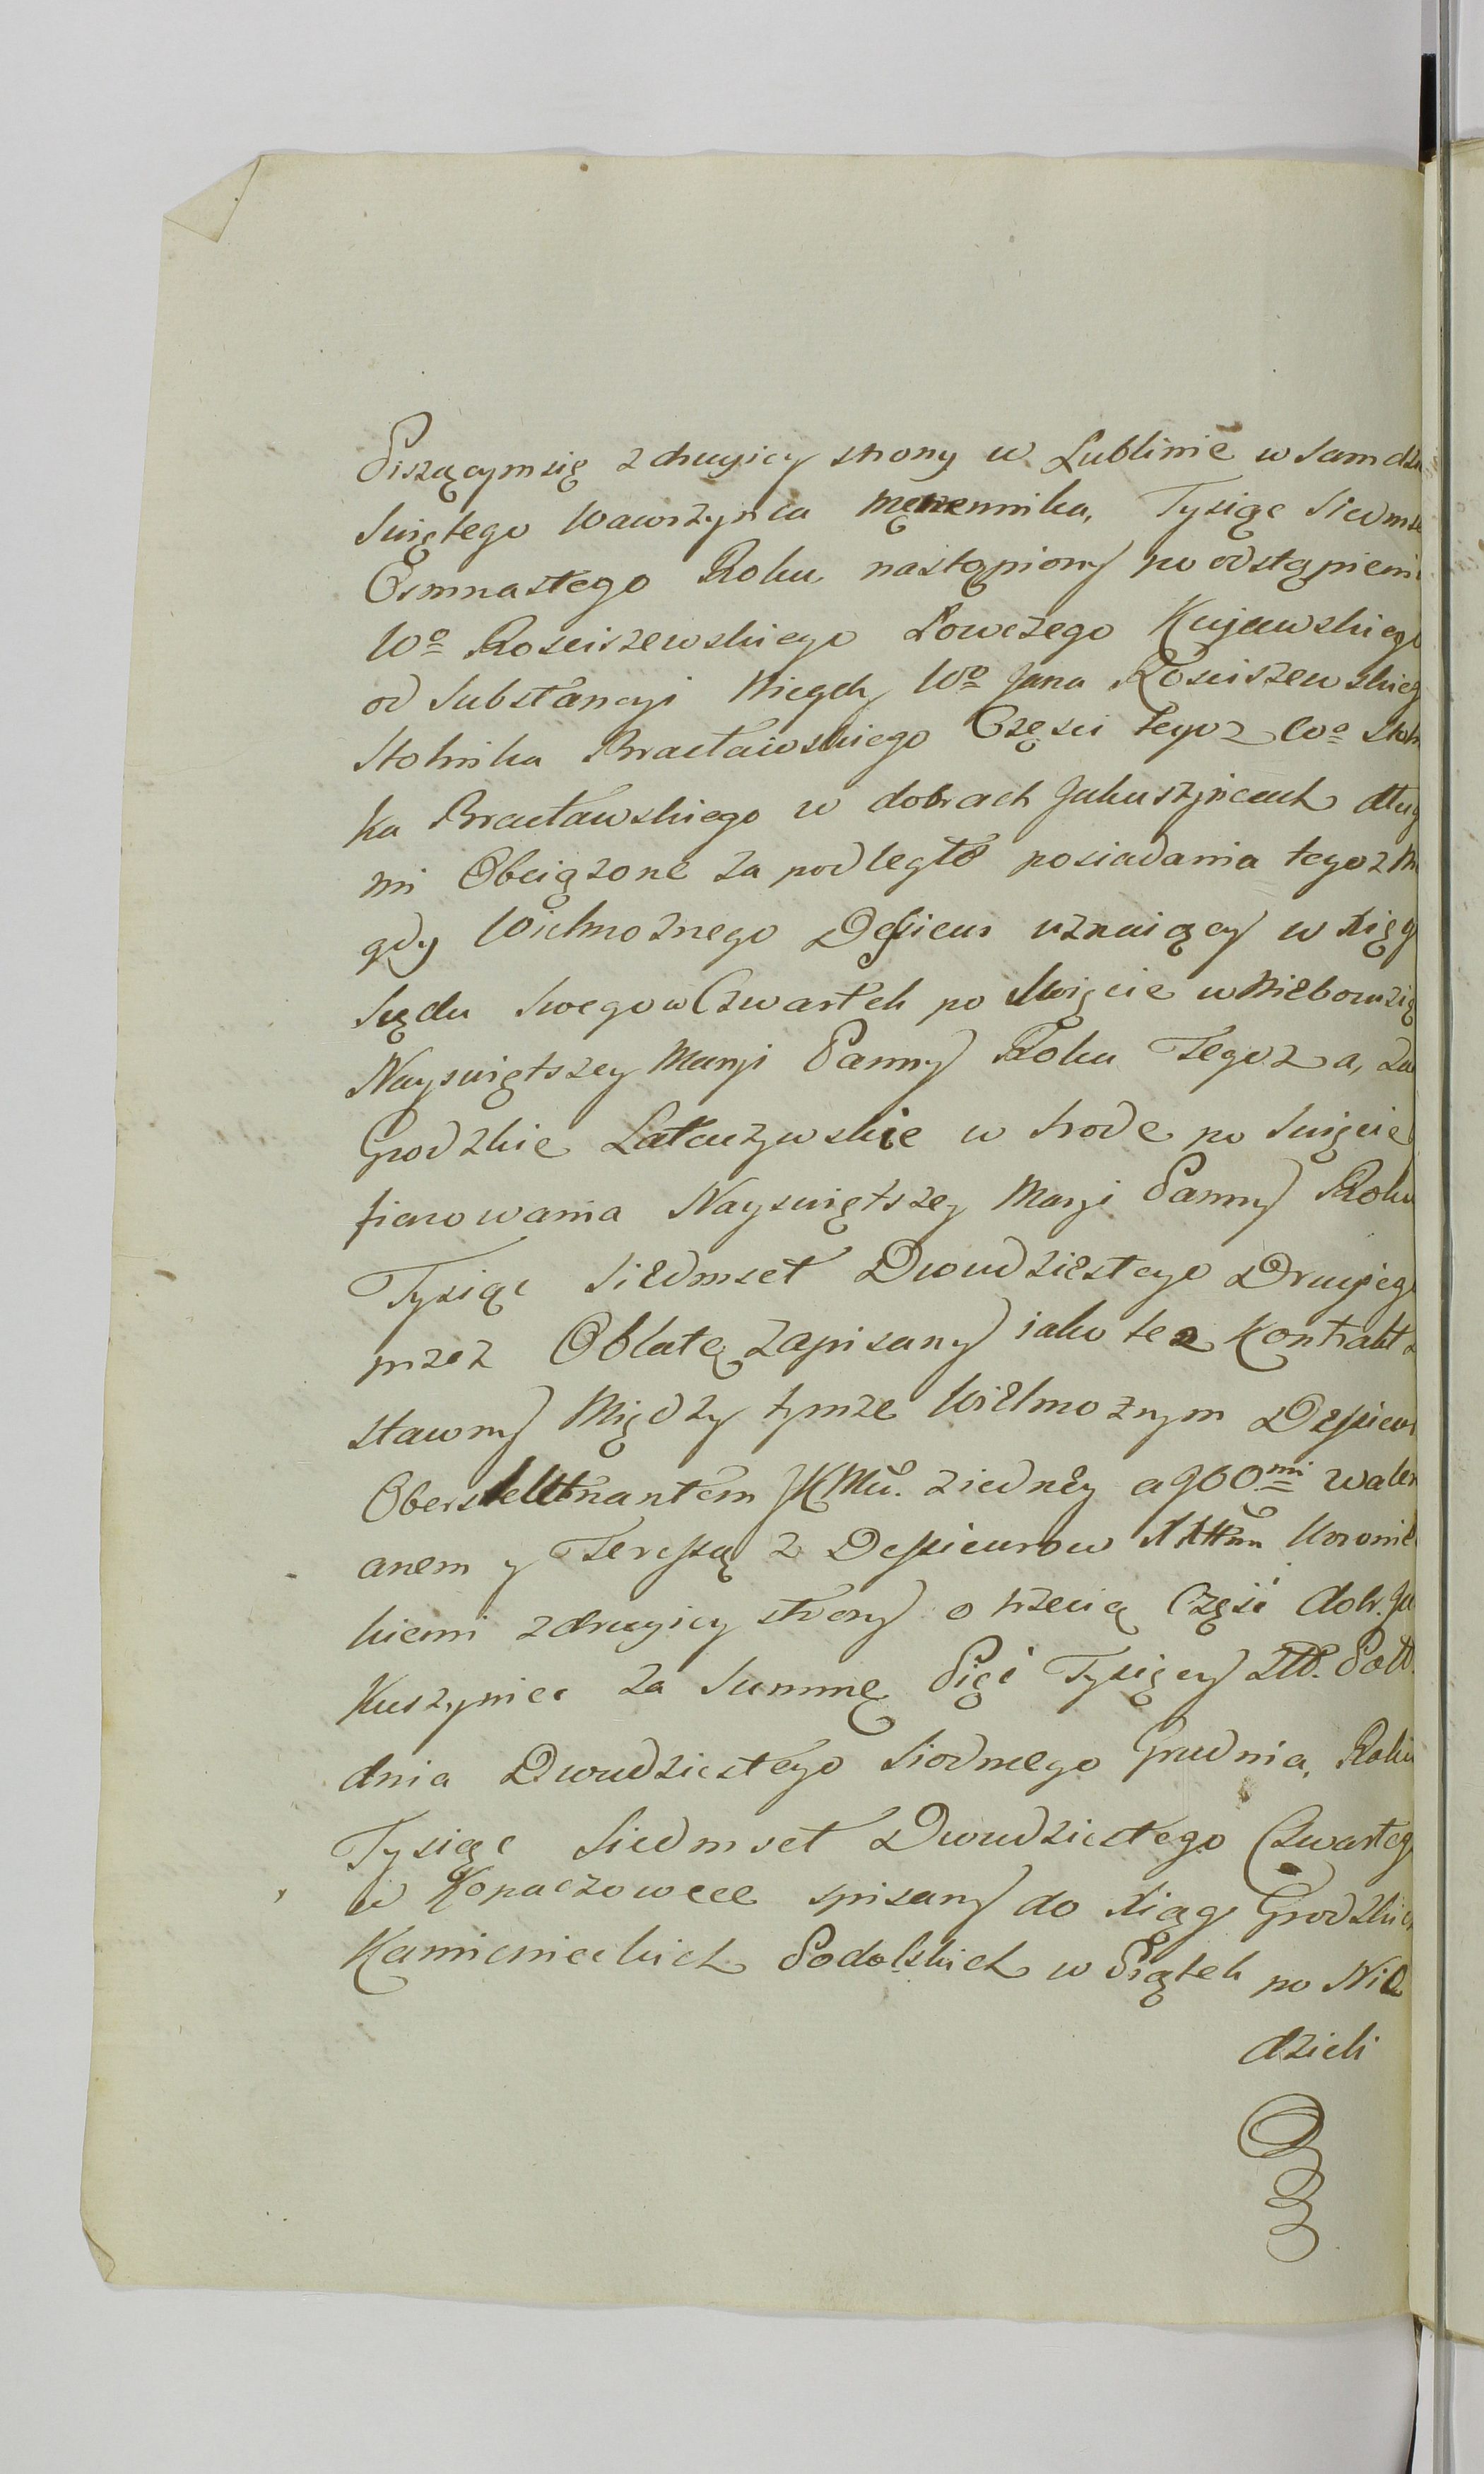 Piszącym się z drugiey strony w Lublinie w Sam dzi
Swiętego Wawrzynca męnennika, Tysiąc Siedmse
Osmnastego Roku nastąpiony po odstąpieni
Wo Rosciszewskiego Łowczego Kujawskiego
od Substancyi Niegdy Wo Jana Rosciszewskieg
Stolnika Bracławskiego Częsci tegoz Wo Stoln
ka Bracławskiego w dobrach Jakuszyncach dług
mi Obciązone za podległo posiadania tegoz Ni
gdy Wielmoznego Desieur uznaiący w Xięg
Sądu Swego w Czwartek po Swięcie w Niebowzię
Nayswiętszey Maryi Panny Roku Tegoz a, do
Grodzkie Latyczewskie w Srode po Swięcie
fiarowania Nayswiętszey Maryi Panny Roku
Tysiąc Siedmset Dwudziestego Drugiego
przez Oblatę zapisany iako tez Kontrakt z
stawny Między tymze Wielmoznym Desieur
Obersteltnantem JKMci. z iedney a Wo mi Waler
anem y Teressą z Desieurow Koronie
kiemi z drugiey strony o trzecią Część dobr. Ja
Kuszyniec za Summę Pięć Tysięcy Złł. Poll.
dnia Dwudziestego Siodmego Grudnia, Roku
Tysiąc Siedmset Dwudziestego Czwarteg
w Kopaczowce spisany do Xiąg Grodzkich
Kamienieckich Podolskich w Piątek po Nie
dzieli